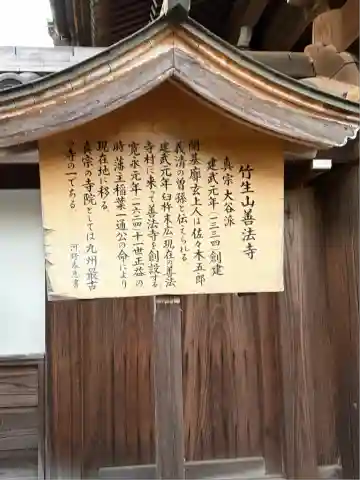 竹生山善法寺
真宗大谷派
建武元年一三三四創建
開基廓玄上人は佐々木五郎
義清の曽孫と伝えられる
建武元年臼杵末広現在の善法
寺村に来て善法寺を創設する
寛永元年一六二四十一世正恭の
時藩主稲葉一通公の命により
現在地に移る
真宗の寺院としては九州最古
の寺の一つである